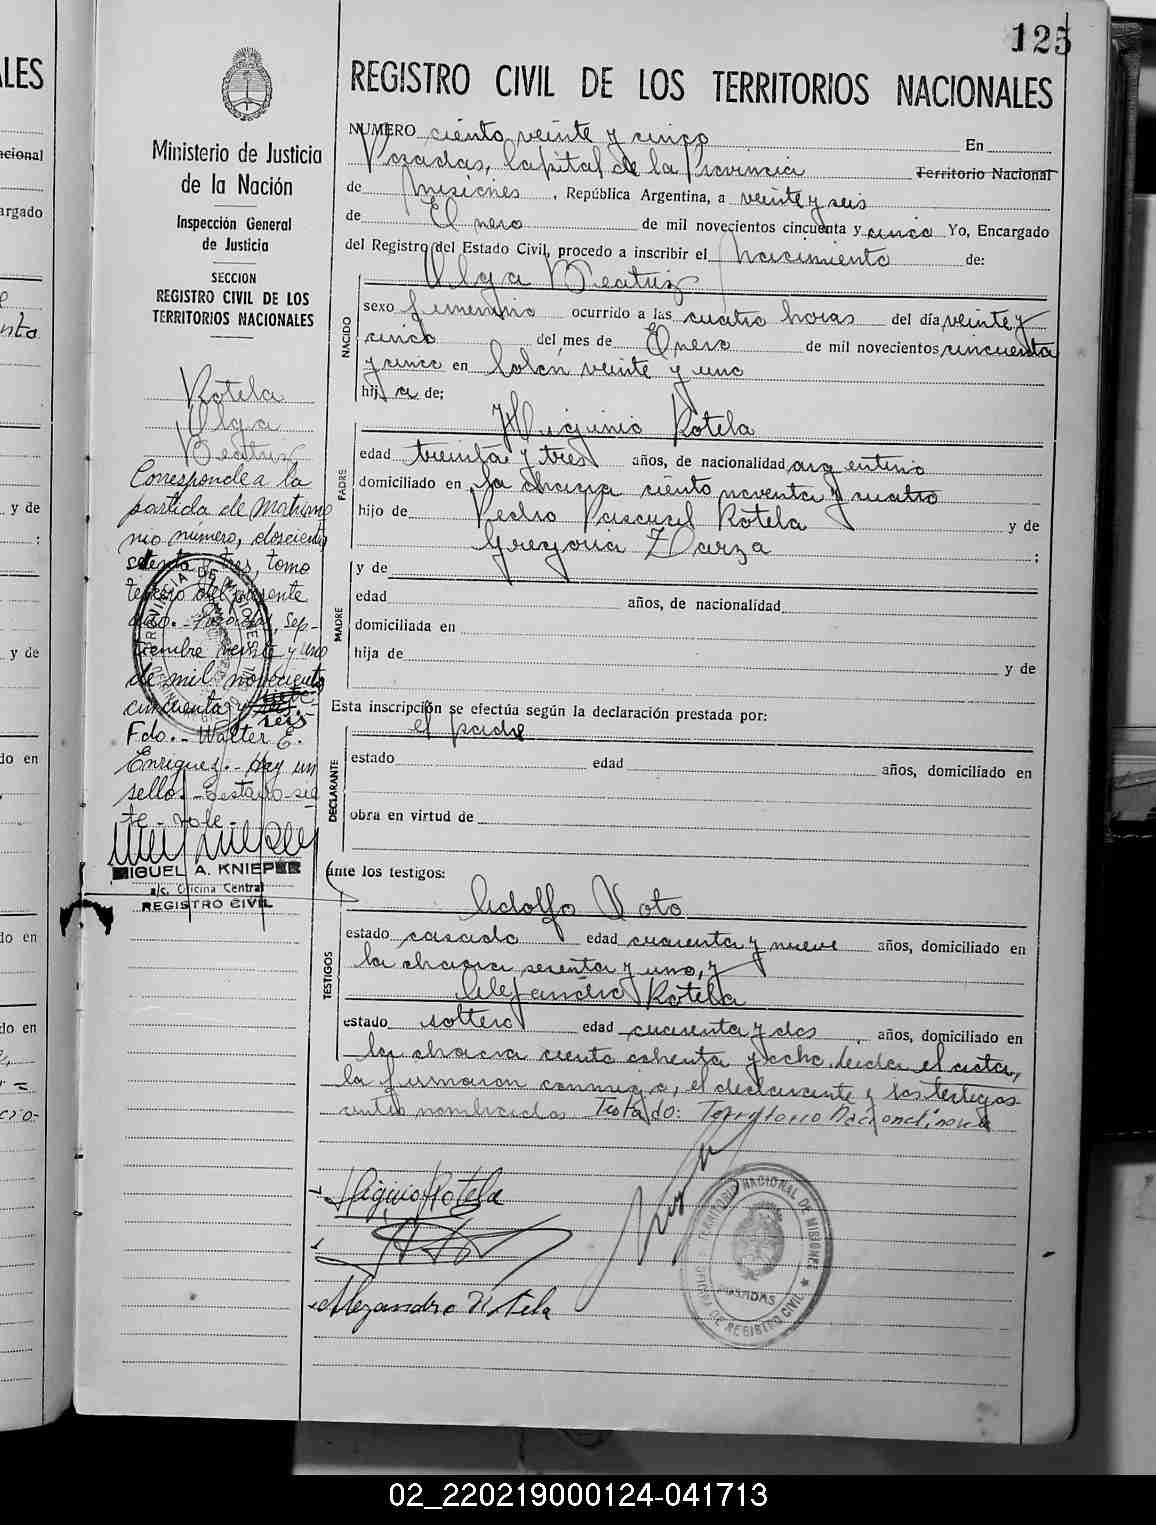 125
REGISTRO CIVIL DE LOS TERRITORIOS NACIONALES
Ministerio de Justicia
de la Nación
Inspección General
de Justicia
SECCION
REGISTRO CIVIL DE LOS
TERRITORIOS NACIONALES
Rotela
Olga
Beatriz
Corresponde a la
partida de Matrimo
nio número, doscientos
setenta y tres, tomo
tercero del presente
año.- Posadas, Sep-
tiembre veinte y uno
de mil novecientos
cincuenta y
seis
Fdo.- Walter E.
Enriquez.- Hay un
sello.- Testado sie
te - vale -
MIGUEL A. KNIEPER
a/c. Oficina Central
REGISTRO CIVIL
NUMERO ciento veinte y cinco En
Posadas, Capital de la Provincia Territorio Nacional
de Misiones, República Argentina, a veinte y seis
de Enero de mil novecientos cincuenta y cinco Yo, Encargado
del Registro del Estado Civil, procedo a inscribir el Nacimiento de:
Olga Beatriz
NACIDO
sexo femenino ocurrido a las cuatro horas del día veinte y
cinco del mes de Enero de mil novecientos cincuenta
y cinco en Colón veinte y uno
hija de;
Higinio Rotela
PADRE
edad treinta y tres años, de nacionalidad argentino
domiciliado en la chacra ciento noventa y cuatro
hijo de Pedro Pascual Rotela y de
Gregoria Darza ;
y de
MADRE
edad años, de nacionalidad
domiciliada en
hija de y de
Esta inscripción se efectúa según la declaración prestada por:
el padre
DECLARANTE
estado edad años, domiciliado en
obra en virtud de
ante los testigos:
Adolfo Soto
TESTIGOS
estado casado edad cuarenta y nueve años, domiciliado en
la chacra sesenta y uno, y
Alejandro Rotela
estado soltero edad cuarenta y dos años, domiciliado en
la chacra ciento ochenta y ocho. Leída el acta,
la firmaron conmigo, el declarante y los testigos
antes nombrados. Testado: Territorio Nacional, no vale
Higinio Rotela
Alejandro Rotela
TERRITORIO NACIONAL DE MISIONES
POSADAS
OFICINA DE REGISTRO CIVIL
PROVINCIA DE MISIONES
02_220219000124-041713